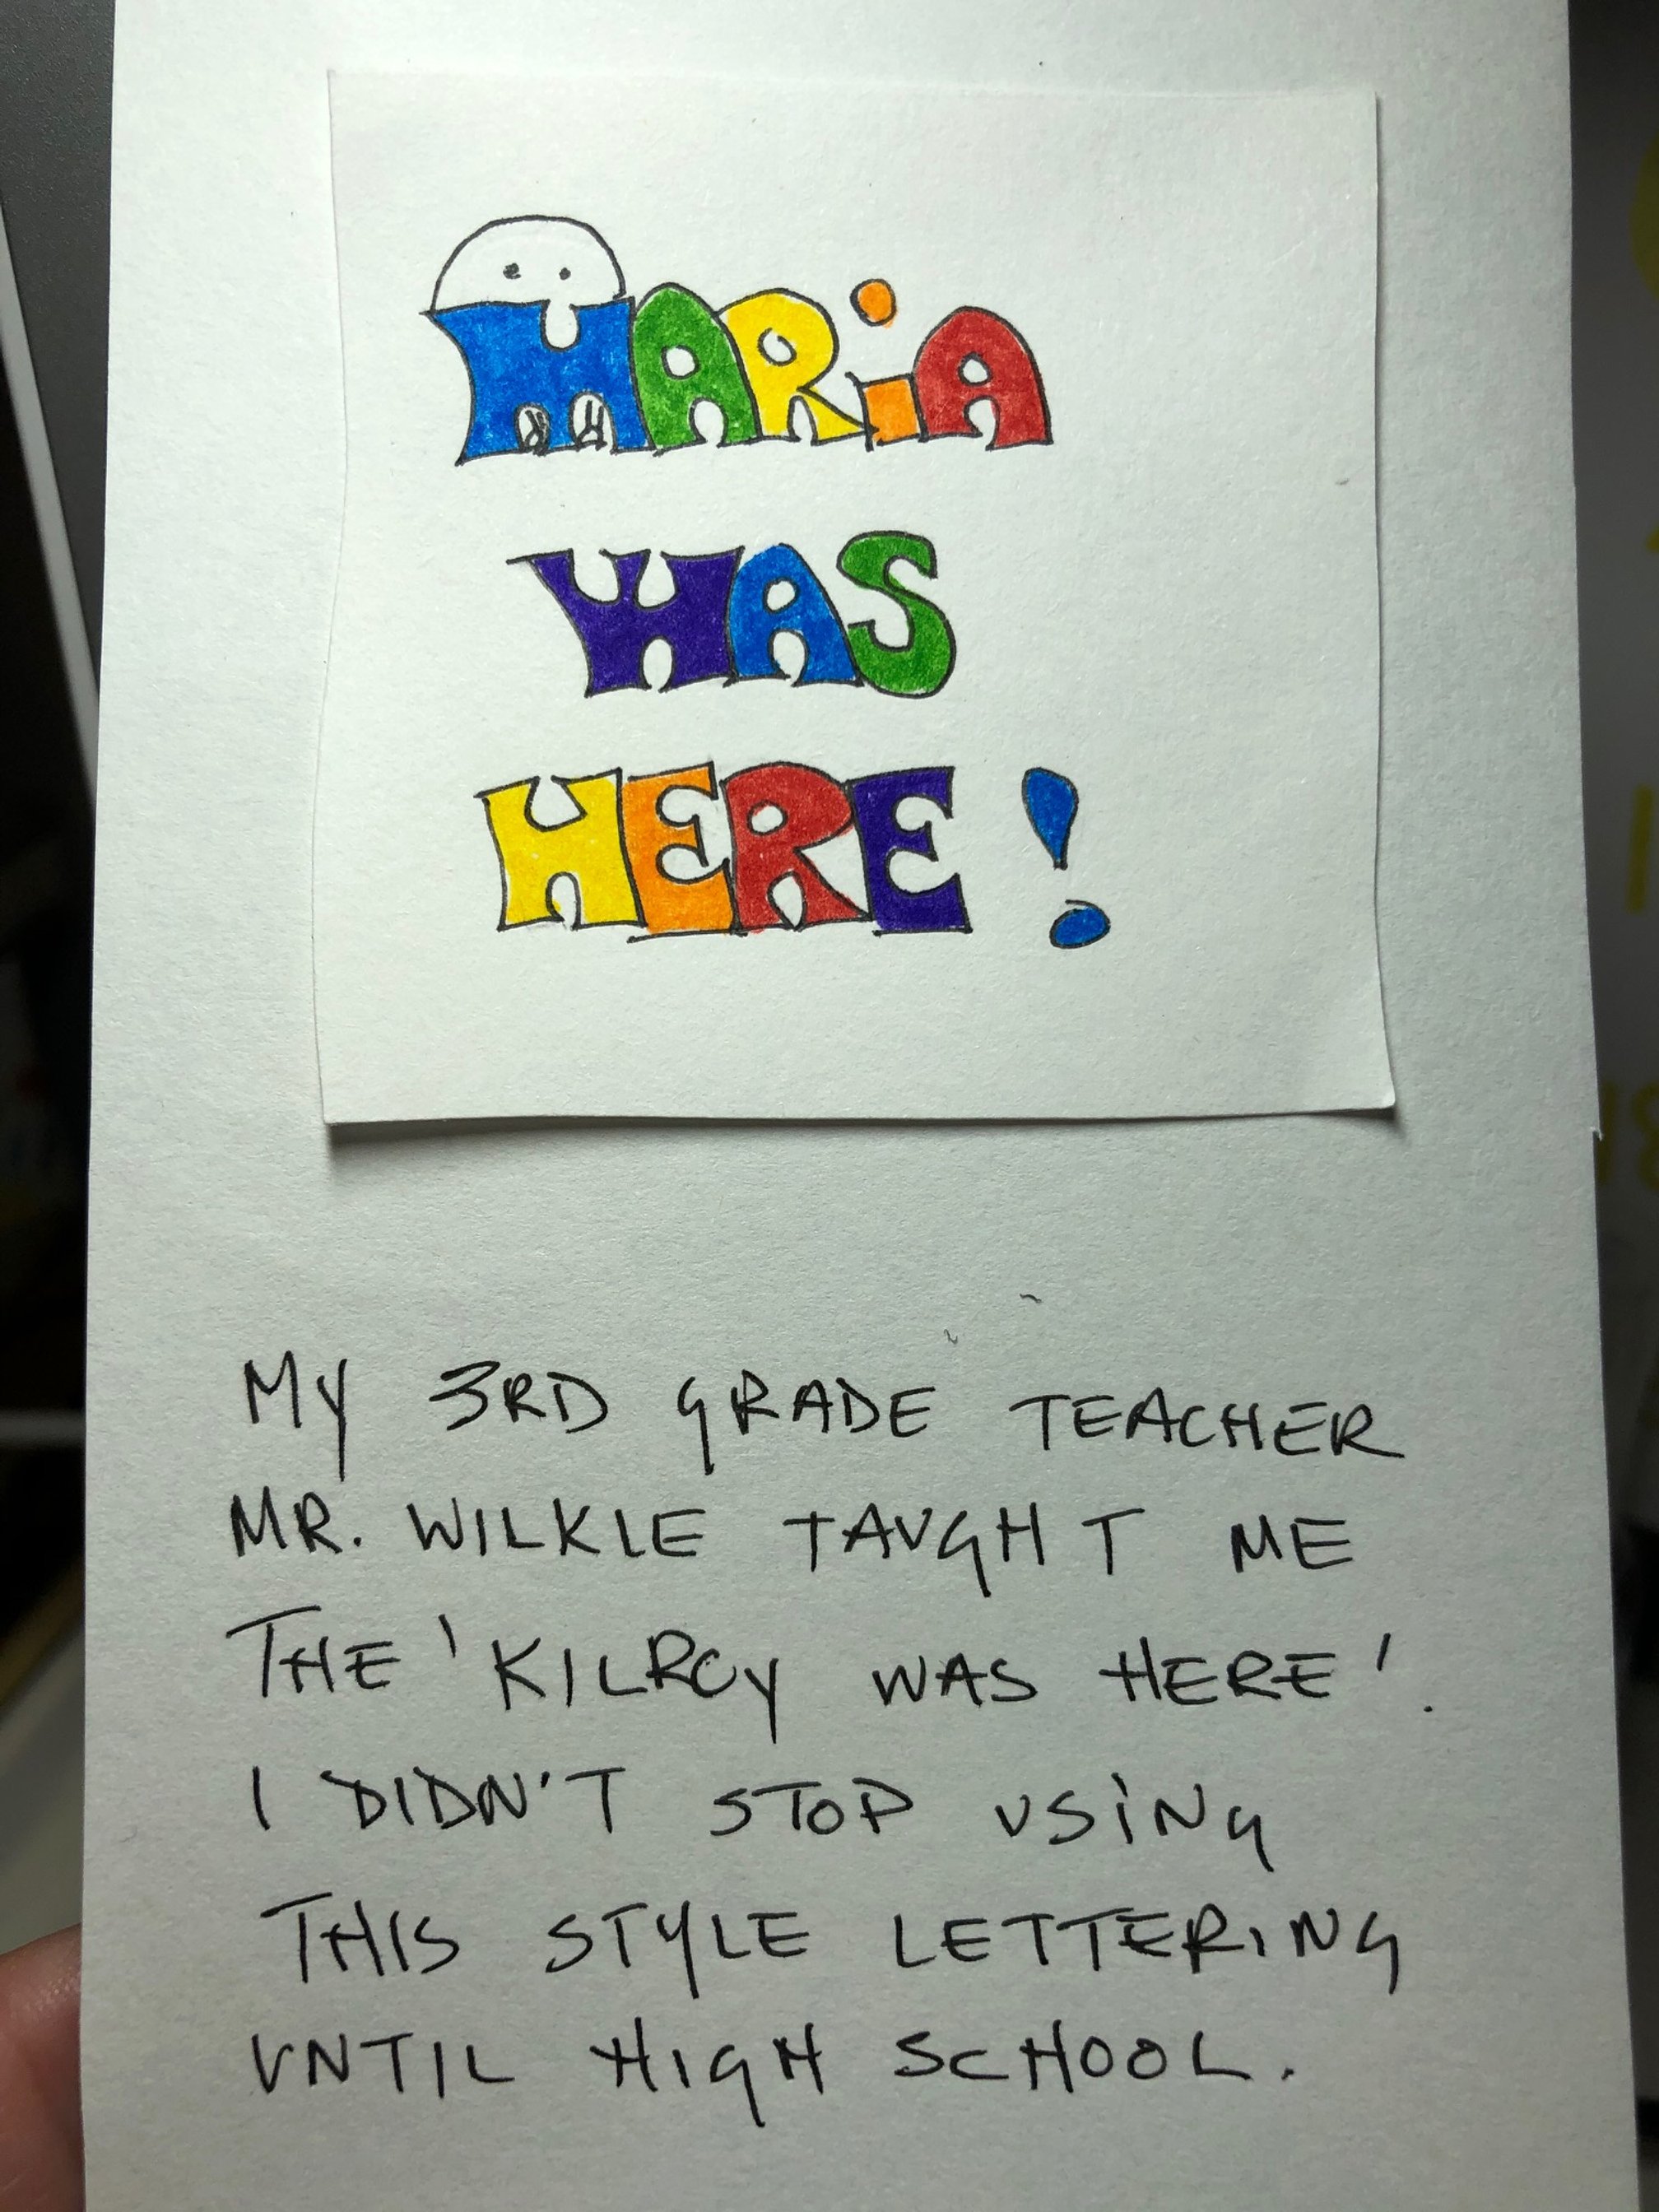 MARiA
WAS
HERE!
MY 3RD GRADE TEACHER
MR. WILKIE TAUGHT ME
THE 'KILROY WAS HERE'.
I DIDN'T STOP USiNG
THIS STYLE LETTERING
UNTIL HIGH SCHOOL.